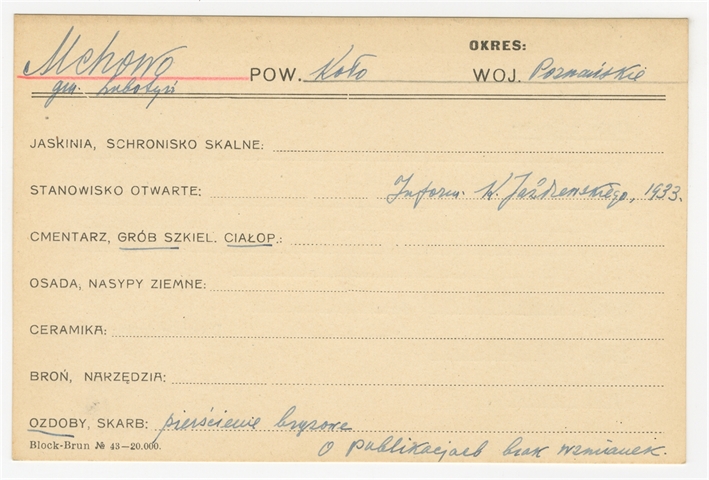 OKRES:
Mchowo POW. Koło WOJ. Poznańskie
gm. Lubotyń
JASKINIA, SCHRONISKO SKALNE:
STANOWISKO OTWARTE: Inform. K. Jażdżewskiego, 1933.
CMENTARZ, GRÓB SZKIEL. CIAŁOP.:
OSADA, NASYPY ZIEMNE:
CERAMIKA:
BROŃ, NARZĘDZIA:
OZDOBY, SKARB: pierścienie brązowe
Block-Brun № 43—20.000. O publikacjach brak wzmianek.